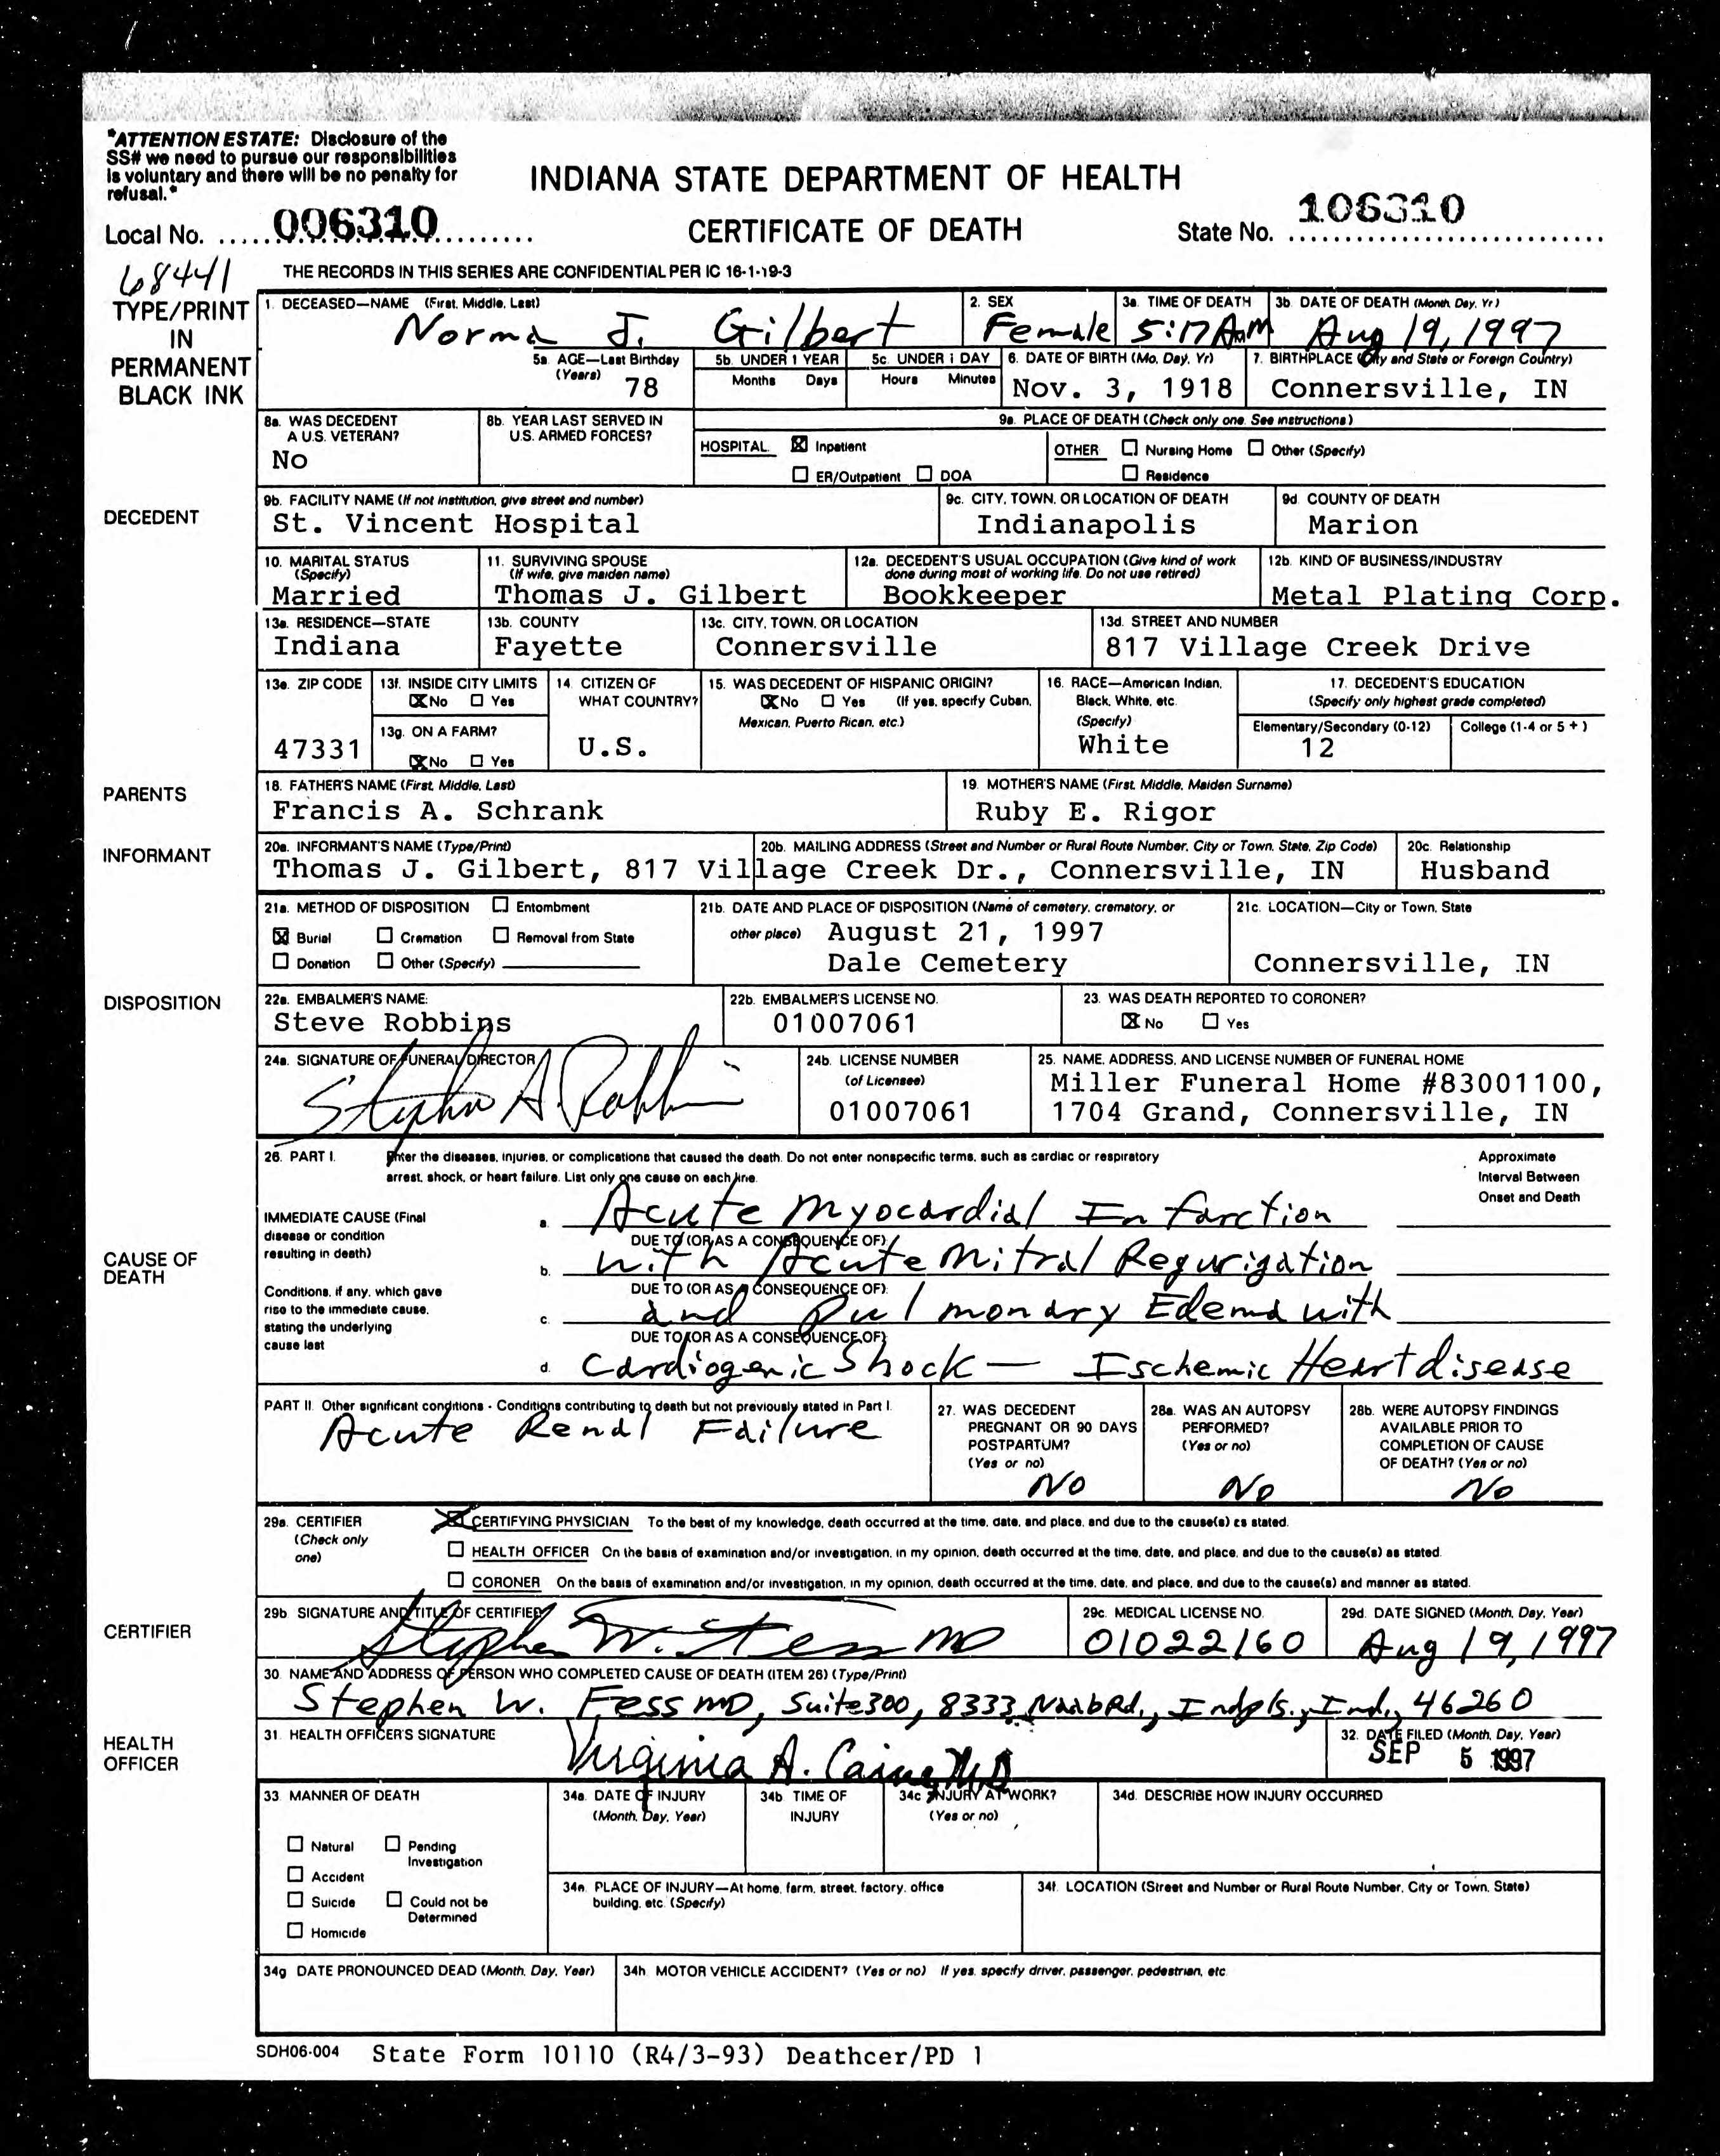 *ATTENTION ESTATE: Disclosure of the
SS# we need to pursue our responsibilities
is voluntary and there will be no penalty for
refusal.*
INDIANA STATE DEPARTMENT OF HEALTH
CERTIFICATE OF DEATH
Local No. 006310
State No. 106310
68441
THE RECORDS IN THIS SERIES ARE CONFIDENTIAL PER IC 16-1-19-3
TYPE/PRINT
IN
PERMANENT
BLACK INK
1. DECEASED—NAME (First, Middle, Last)
Norma J. Gilbert
2. SEX
Female
3a. TIME OF DEATH
5:17 AM
3b. DATE OF DEATH (Month, Day, Yr)
Aug 19, 1997
5a. AGE—Last Birthday
(Years)
78
5b. UNDER 1 YEAR
Months Days
5c. UNDER 1 DAY
Hours Minutes
6. DATE OF BIRTH (Mo, Day, Yr)
Nov. 3, 1918
7. BIRTHPLACE (City and State or Foreign Country)
Connersville, IN
DECEDENT
8a. WAS DECEDENT
A U.S. VETERAN?
No
8b. YEAR LAST SERVED IN
U.S. ARMED FORCES?
9a. PLACE OF DEATH (Check only one. See instructions)
HOSPITAL Inpatient
ER/Outpatient DOA
OTHER Nursing Home Other (Specify)
Residence
9b. FACILITY NAME (If not institution, give street and number)
St. Vincent Hospital
9c. CITY, TOWN, OR LOCATION OF DEATH
Indianapolis
9d. COUNTY OF DEATH
Marion
10. MARITAL STATUS
(Specify)
Married
11. SURVIVING SPOUSE
(If wife, give maiden name)
Thomas J. Gilbert
12a. DECEDENT'S USUAL OCCUPATION (Give kind of work
done during most of working life. Do not use retired)
Bookkeeper
12b. KIND OF BUSINESS/INDUSTRY
Metal Plating Corp.
13a. RESIDENCE—STATE
Indiana
13b. COUNTY
Fayette
13c. CITY, TOWN, OR LOCATION
Connersville
13d. STREET AND NUMBER
817 Village Creek Drive
13e. ZIP CODE
47331
13f. INSIDE CITY LIMITS
No Yes
13g. ON A FARM?
No Yes
14. CITIZEN OF
WHAT COUNTRY?
U.S.
15. WAS DECEDENT OF HISPANIC ORIGIN?
No Yes (If yes, specify Cuban,
Mexican, Puerto Rican, etc.)
16. RACE—American Indian,
Black, White, etc.
(Specify)
White
17. DECEDENT'S EDUCATION
(Specify only highest grade completed)
Elementary/Secondary (0-12)
12
College (1-4 or 5 + )
PARENTS
18. FATHER'S NAME (First, Middle, Last)
Francis A. Schrank
19. MOTHER'S NAME (First, Middle, Maiden Surname)
Ruby E. Rigor
INFORMANT
20a. INFORMANT'S NAME (Type/Print)
20b. MAILING ADDRESS (Street and Number or Rural Route Number, City or Town, State, Zip Code)
20c. Relationship
Thomas J. Gilbert, 817 Village Creek Dr., Connersville, IN
Husband
DISPOSITION
21a. METHOD OF DISPOSITION Entombment
Burial Cremation Removal from State
Donation Other (Specify)
21b. DATE AND PLACE OF DISPOSITION (Name of cemetery, crematory, or
other place) August 21, 1997
Dale Cemetery
21c. LOCATION—City or Town, State
Connersville, IN
22a. EMBALMER'S NAME:
Steve Robbins
22b. EMBALMER'S LICENSE NO.
01007061
23. WAS DEATH REPORTED TO CORONER?
No Yes
24a. SIGNATURE OF FUNERAL DIRECTOR
Stephen A. Robbins
24b. LICENSE NUMBER
(of Licensee)
01007061
25. NAME, ADDRESS, AND LICENSE NUMBER OF FUNERAL HOME
Miller Funeral Home #83001100,
1704 Grand, Connersville, IN
CAUSE OF
DEATH
26. PART I. Enter the diseases, injuries, or complications that caused the death. Do not enter nonspecific terms, such as cardiac or respiratory
arrest, shock, or heart failure. List only one cause on each line.
Approximate
Interval Between
Onset and Death
IMMEDIATE CAUSE (Final
disease or condition
resulting in death)
a. Acute Myocardial Infarction
DUE TO (OR AS A CONSEQUENCE OF):
b. with Acute Mitral Regurigation
Conditions, if any, which gave
rise to the immediate cause,
stating the underlying
cause last
DUE TO (OR AS A CONSEQUENCE OF):
c. and Pulmonary Edema with
DUE TO (OR AS A CONSEQUENCE OF):
d. Cardiogenic Shock — Ischemic Heart disease
PART II. Other significant conditions - Conditions contributing to death but not previously stated in Part I.
Acute Renal Failure
27. WAS DECEDENT
PREGNANT OR 90 DAYS
POSTPARTUM?
(Yes or no)
No
28a. WAS AN AUTOPSY
PERFORMED?
(Yes or no)
No
28b. WERE AUTOPSY FINDINGS
AVAILABLE PRIOR TO
COMPLETION OF CAUSE
OF DEATH? (Yes or no)
No
CERTIFIER
29a. CERTIFIER
(Check only
one)
CERTIFYING PHYSICIAN To the best of my knowledge, death occurred at the time, date, and place, and due to the cause(s) as stated.
HEALTH OFFICER On the basis of examination and/or investigation, in my opinion, death occurred at the time, date, and place, and due to the cause(s) as stated.
CORONER On the basis of examination and/or investigation, in my opinion, death occurred at the time, date, and place, and due to the cause(s) and manner as stated.
29b. SIGNATURE AND TITLE OF CERTIFIER
Stephen W. Fess MD
29c. MEDICAL LICENSE NO.
01022160
29d. DATE SIGNED (Month, Day, Year)
Aug 19, 1997
30. NAME AND ADDRESS OF PERSON WHO COMPLETED CAUSE OF DEATH (ITEM 26) (Type/Print)
Stephen W. Fess MD, Suite 300, 8333 Naab Rd., Indpls., Ind., 46260
HEALTH
OFFICER
31. HEALTH OFFICER'S SIGNATURE
Virginia A. Caine, M.D.
32. DATE FILED (Month, Day, Year)
SEP 5 1997
33. MANNER OF DEATH
Natural Pending
Investigation
Accident
Suicide Could not be
Determined
Homicide
34a. DATE OF INJURY
(Month, Day, Year)
34b. TIME OF
INJURY
34c. INJURY AT WORK?
(Yes or no)
34d. DESCRIBE HOW INJURY OCCURRED
34e. PLACE OF INJURY—At home, farm, street, factory, office
building, etc. (Specify)
34f. LOCATION (Street and Number or Rural Route Number, City or Town, State)
34g. DATE PRONOUNCED DEAD (Month, Day, Year)
34h. MOTOR VEHICLE ACCIDENT? (Yes or no) If yes, specify driver, passenger, pedestrian, etc.
SDH06-004 State Form 10110 (R4/3-93) Deathcer/PD 1